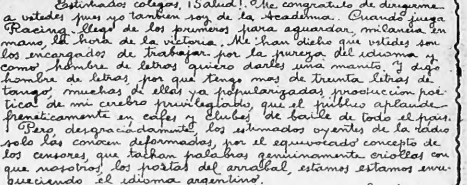 Estimados colegas, ¡Salud!. Me congratulo de dirigirme
a ustedes pues yo tambien soy de la Academia. Cuando juega
Racing llego de los primeros para aguardar, milanesa en
mano, la hora de la victoria. Me han dicho que ustedes son
los encargados de trabajar por la pureza del idioma y
como hombre de letras quiero darles una manito, y digo
hombre de letras por que tengo mas de treinta letras de
tango, muchas de ellas ya popularizadas, producción poé-
tica de mi cerebro privilegiado, que el publico aplaude
freneticamente en cafes y clubes de baile de todo el pais.
Pero, desgraciadamente, los estimados oyentes de la radio
solo las conocen deformadas, por el equivocado concepto de
los censores, que tachan palabras genuinamente criollas con
que nosotros, los poetas del arrabal, estamos estamos enri-
queciendo el idioma argentino.